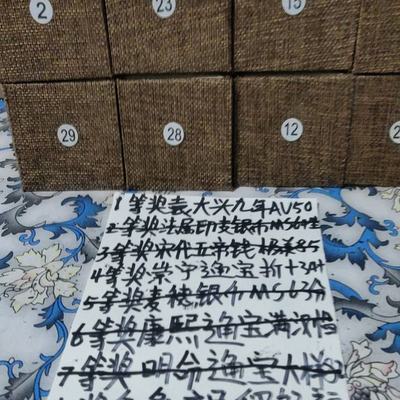 2
23
15
29
28
12
2
1等奖袁大头九年AU50
2等奖法属印支银币MS64
3等奖宋代五帝钱极美85
4等奖崇宁通宝折十
5等奖麦穗银币MS63分
6等奖康熙通宝满汉
7等奖明命通宝大样